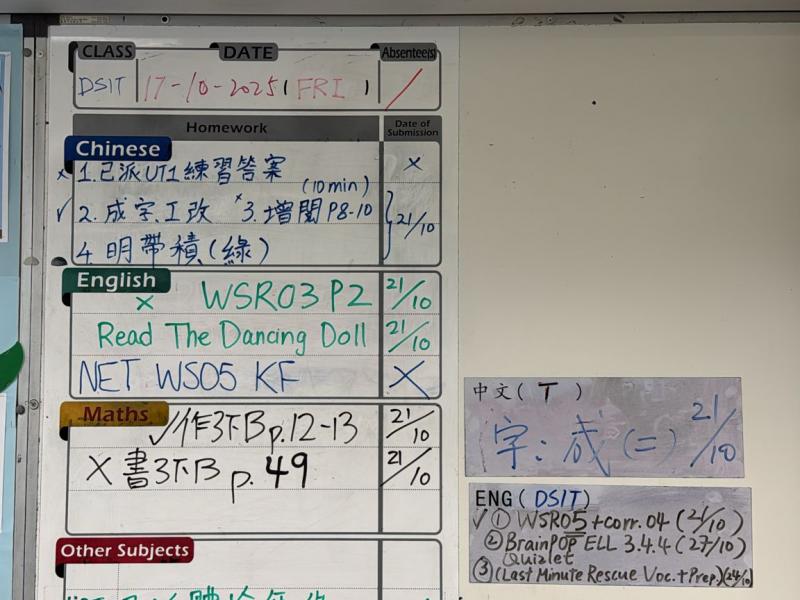 CLASS DATE Absentee(s)
DSIT 17-10-2025 (FRI) /
Homework Date of Submission
Chinese
x 1. 已派UT1練習答案 x
(10 min)
✓ 2. 成字.工改 x 3. 增閱 P8-10 } 21/10
4. 明帶積(綠)
English
x WSR03 P2 21/10
Read The Dancing Doll 21/10
NET WS05 KF X
Maths
✓作3下B p.12-13 21/10
X 書3下B p.49 21/10
Other Subjects
中文( T )
字:成(二) 21/10
ENG (DSIT)
✓ ① WSR05 + corr. 04 (21/10)
② BrainPOP ELL 3.4.4 (27/10)
Quizlet
③ (Last Minute Rescue Voc. + Prep.) (24/10)